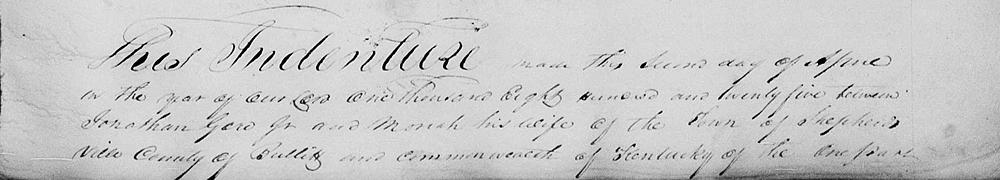 This Indenture made this Second day of Aprie
in the year of our Lord One Thousand Eight Hundred and twenty five between
Jonathan Gore Jr and Moriah his wife of the Town of Shepherds
ville County of Bullitt and commonwealth of Kentucky of the One part